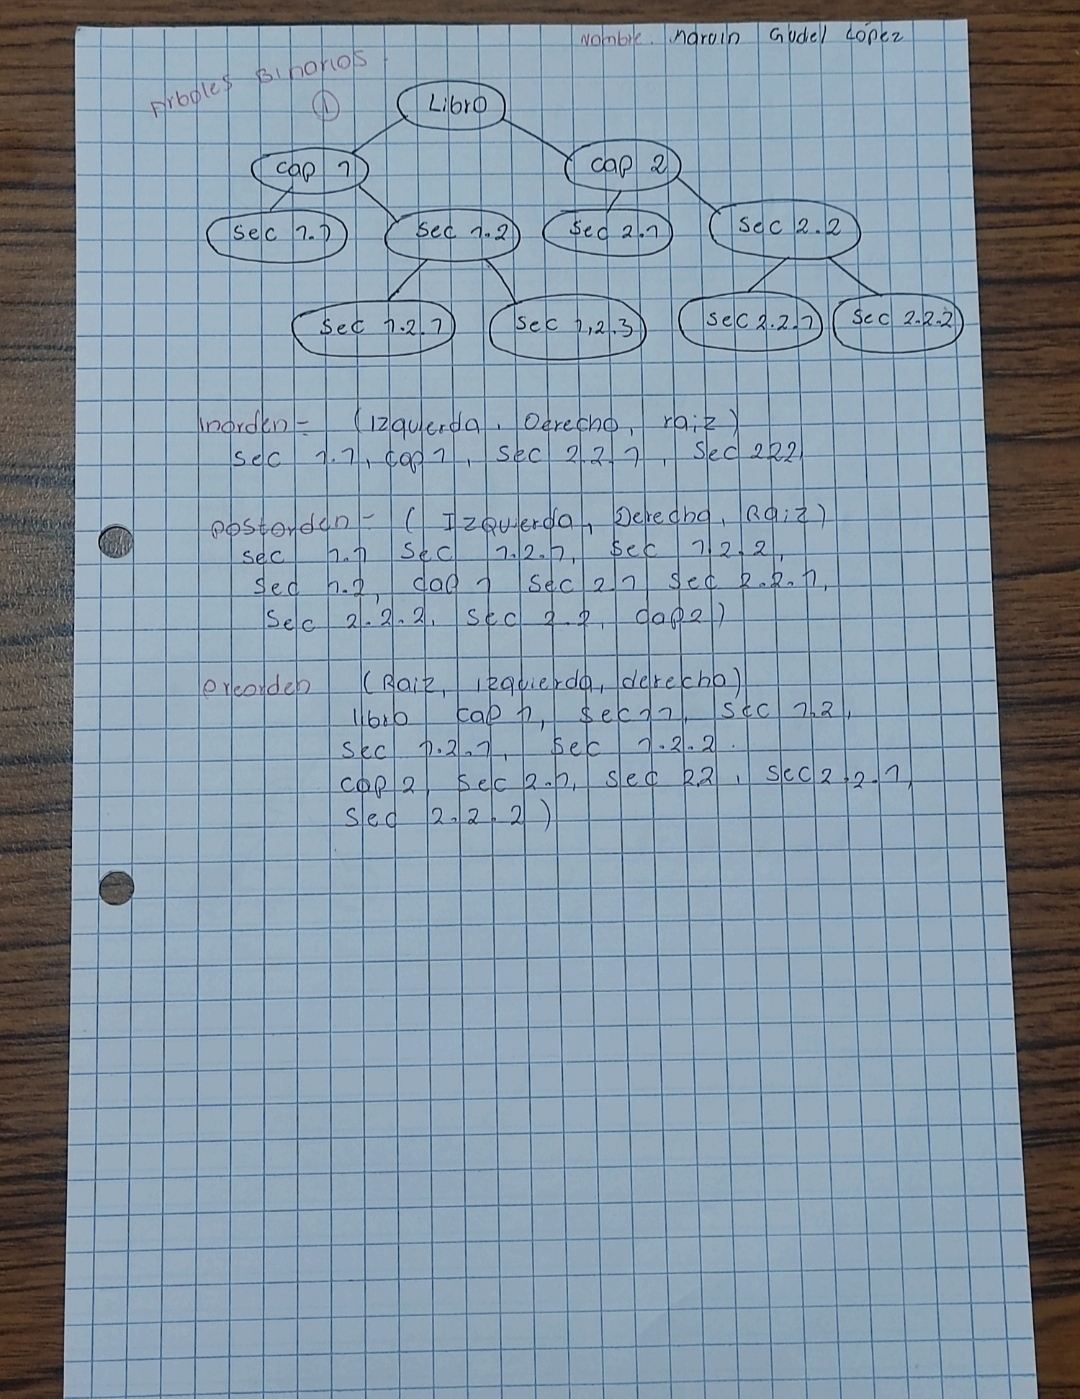 Nombre. Marvin Gudel López
Arboles Binarios.
①
Libro
cap 1 cap 2
Sec 1.1 Sec 1.2 Sec 2.1 Sec 2.2
Sec 1.2.1 Sec 1,2.3 Sec 2.2.1 Sec 2.2.2
Inorden = (Izquierda, Derecha, raiz)
Sec 1.1, cap 1, Sec 2 2 1, Sec 222
postorden - ( Izquierda, Derecha, Raiz)
sec 1.1 Sec 1.2.1, Sec 1 2.2,
Sec 1.2, cap 1 Sec 2 1 Sec 2.2.1,
Sec 2.2.2, Sec 2.2, cap 2)
preorden (Raiz, izquierda, derecha)
libro cap 1, Sec 1 1, Sec 1.2,
Sec 1.2.1, Sec 1.2.2.
cap 2, Sec 2.1, Sec 22, Sec 2.2.1,
Sec 2.2.2)